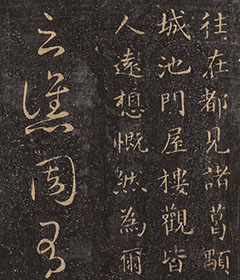 往在都見諸葛顒
城池門屋樓觀皆
人遠想慨然為爾
云譙周有